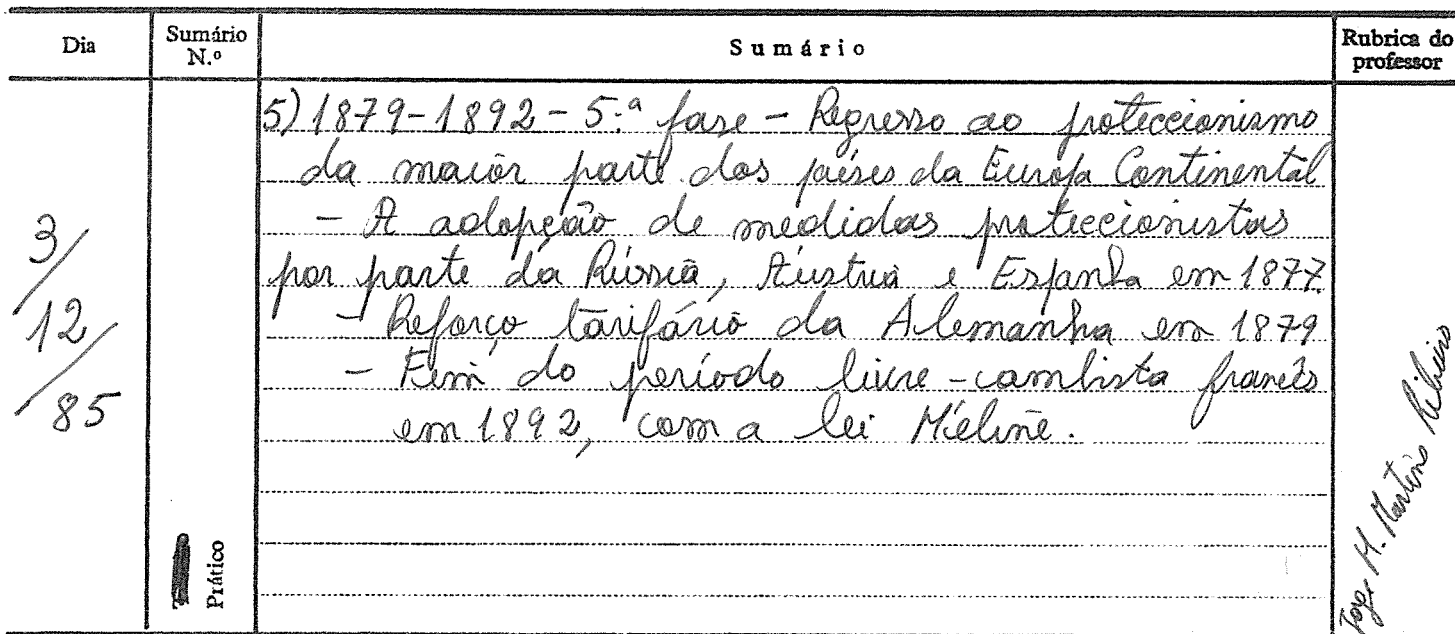 Dia
Sumário N.º
Sumário
Rubrica do professor
3/12/85
Prático
5) 1879-1892 - 5.ª fase - Regresso ao proteccionismo
da maior parte dos países da Europa Continental
- A adopção de medidas proteccionistas
por parte da Rússia, Áustria e Espanha em 1877.
- Reforço tarifário da Alemanha em 1879
- Fim do período livre-cambista francês
em 1892, com a lei Méline.
Jorge M. Martins Ribeiro